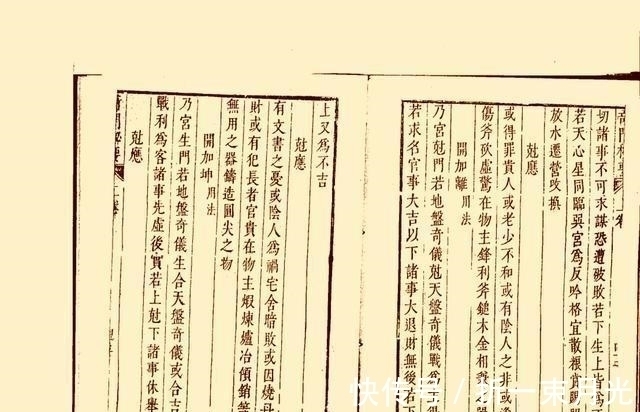 切諸事不可求謀恐遭破敗若下生上
若天心星同臨巽宮為反吟格宜散
放水遷營攻損
尅應
或得罪貴人或老少不和或有陰人是非
傷斧砍虛驚在物主鋒利斧鎚木金相
開加離用法
乃宮尅門若地盤奇儀尅天盤奇儀戰為
若求名官事大吉以下諸事大退財無後
上又為不吉
尅應
有文書之憂或陰人為禍宅舍暗敗或因燒
財或有犯長者官貴在物主煅煉爐冶傾銷
無用之器鑄造圓尖之物
開加坤用法
乃宮生門若地盤奇儀生合天盤奇儀或合吉
戰利為客諸事先虛後實若上尅下諸事休舉
奇門秘要
快傳号 / 拆一束月光